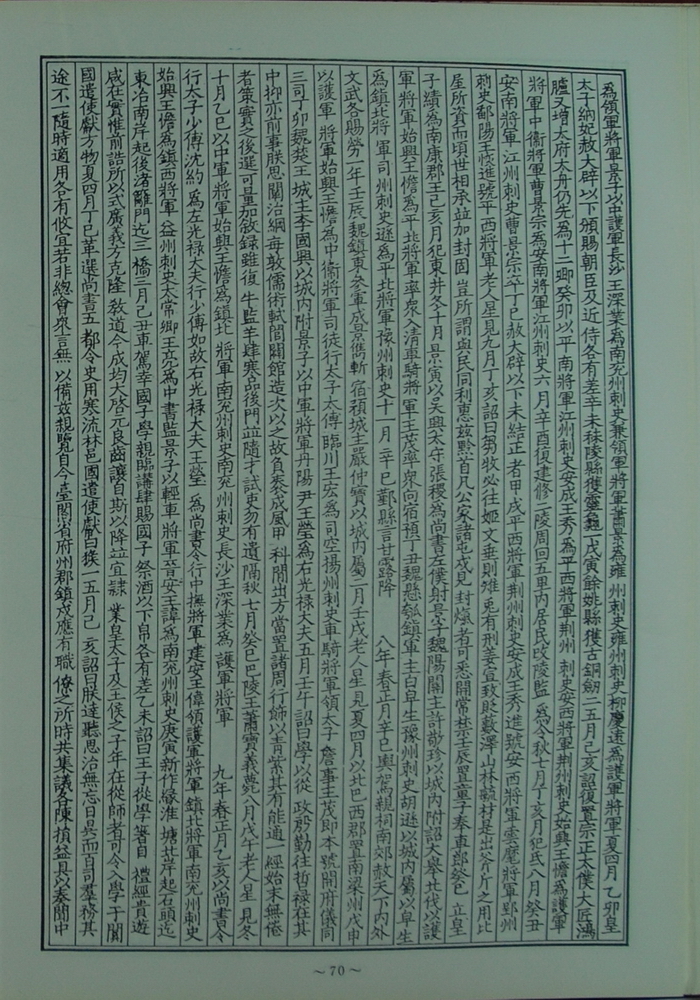 為領軍將軍景子以中護軍長沙王深業為南兗州刺史兼領軍將軍蕭景為雍 州刺史雍州刺史柳慶遠為護軍將軍夏四月乙卯皇
太子納妃赦大辟以下頒賜朝臣及近 侍各有差辛未秣陵縣獲靈龜一戊寅餘姚縣獲古銅劒二五月己亥詔復置宗正太僕大匠鴻
臚又增太府太舟仍先為十二卿癸卯以平南將軍江州刺史安成王秀為平西將軍荆州 刺史安西將軍荆州刺史始興王憺為護軍
將軍中衞將軍曹景宗為安南將軍江州刺史六月辛酉復建修二陵周回五里內居民改陵監 為令秋七月丁亥月犯氐八月癸丑
安南將軍江州刺史曹景宗卒丁巳赦大辟以下未結正者甲戌平西將軍荆州刺史安成王秀進號安西將軍雲麾將軍郢州
刺史鄱陽王恢進號平西將軍老人星見九月丁亥詔曰芻牧必往姬文垂則雉兎有刑姜宣致貶藪澤山林毓材是出斧斤之用比
屋所資而頃世相承竝加封固豈所謂與民同利惠兹黔首凡公家諸屯戍見封熂者可悉開常禁壬辰置童子奉車郎癸巳 立皇
子績為南康郡王己亥月犯東井冬十月景寅以吳興太守張稷為尚書左僕射景子魏陽關主許敬珍以城內附詔大舉北伐以護
軍將軍始興王憺為平北將軍率衆入清車騎將軍王茂率衆向宿預丁丑魏懸瓠鎮軍主白早生豫州刺史胡遜以城內屬以早生
為鎮北將 軍司州刺史遜為平北將軍豫州刺史十一月辛巳鄞縣言甘露降 八年春正月辛巳輿駕親祠南郊赦天下內外
文武各賜勞一年壬辰魏鎮東參軍成景雋斬 宿預城主嚴仲寶以城內屬二月壬戌老人星見夏四月以北巴西郡置南梁州戊申
以護軍 將軍始興王憺為中衞將軍司徒行太子太傅 臨川王宏為司空揚州刺史車騎將軍領太子 詹事王茂即本號開府儀同
三司丁卯魏楚王城主李國興以城內附景子以中軍將軍丹陽 尹王瑩為右光祿大夫五月壬午詔曰學以從 政殷勤往哲祿在其
中抑亦前事朕思闡治綱每敦儒術軾閭闢館造次以之故負袠成風甲 科間出方當置諸周行飾以青紫其有能通一經始末無倦
者策實之後選可量加敘錄雖復 牛監羊肆寒品後門竝隨才試吏勿有遺隔秋七月癸巳巴陵王蕭寶義薨八月戊午老人星 見冬
十月乙巳以中軍將軍始興王憺為鎮北 將軍南兗州刺史南兗州刺史長沙王深業為 護軍將軍 九年春正月乙亥以尚書令
行太子少傅沈約 為左光祿大夫行少傅如故右光祿大夫王瑩 為尚書令行中撫將軍建安王偉領護軍將軍鎮北將軍南兗州刺史
始興王憺為鎮西將軍益州刺史太常卿王亮為中書監景子以輕車 將軍晉安王諱為南兗州刺史庚寅新作緣淮 塘北岸起石頭迄
東冶南岸起後渚籬門迄三 橋三月己丑車駕幸國子學親臨講肆賜國子 祭酒以下帛各有差乙未詔曰王子從學著自 禮經貴遊
咸在實惟前誥所以式廣義方克隆 敎道今成均大啓元良齒讓自斯以降竝宜肄 業皇太子及王侯之子年在從師者可令入學于闐
國遣使獻方物夏四月丁巳革選尚書五 都令史用寒流林邑國遣使獻白猴一五月己 亥詔曰朕達聽思治無忘日昃而百司羣務其
途不一隨時適用各有攸宜若非總會衆言無 以備兹親覽自今臺閣省府州郡鎮戍應有職 僚之所時共集議各陳損益具以奏聞中
~70~